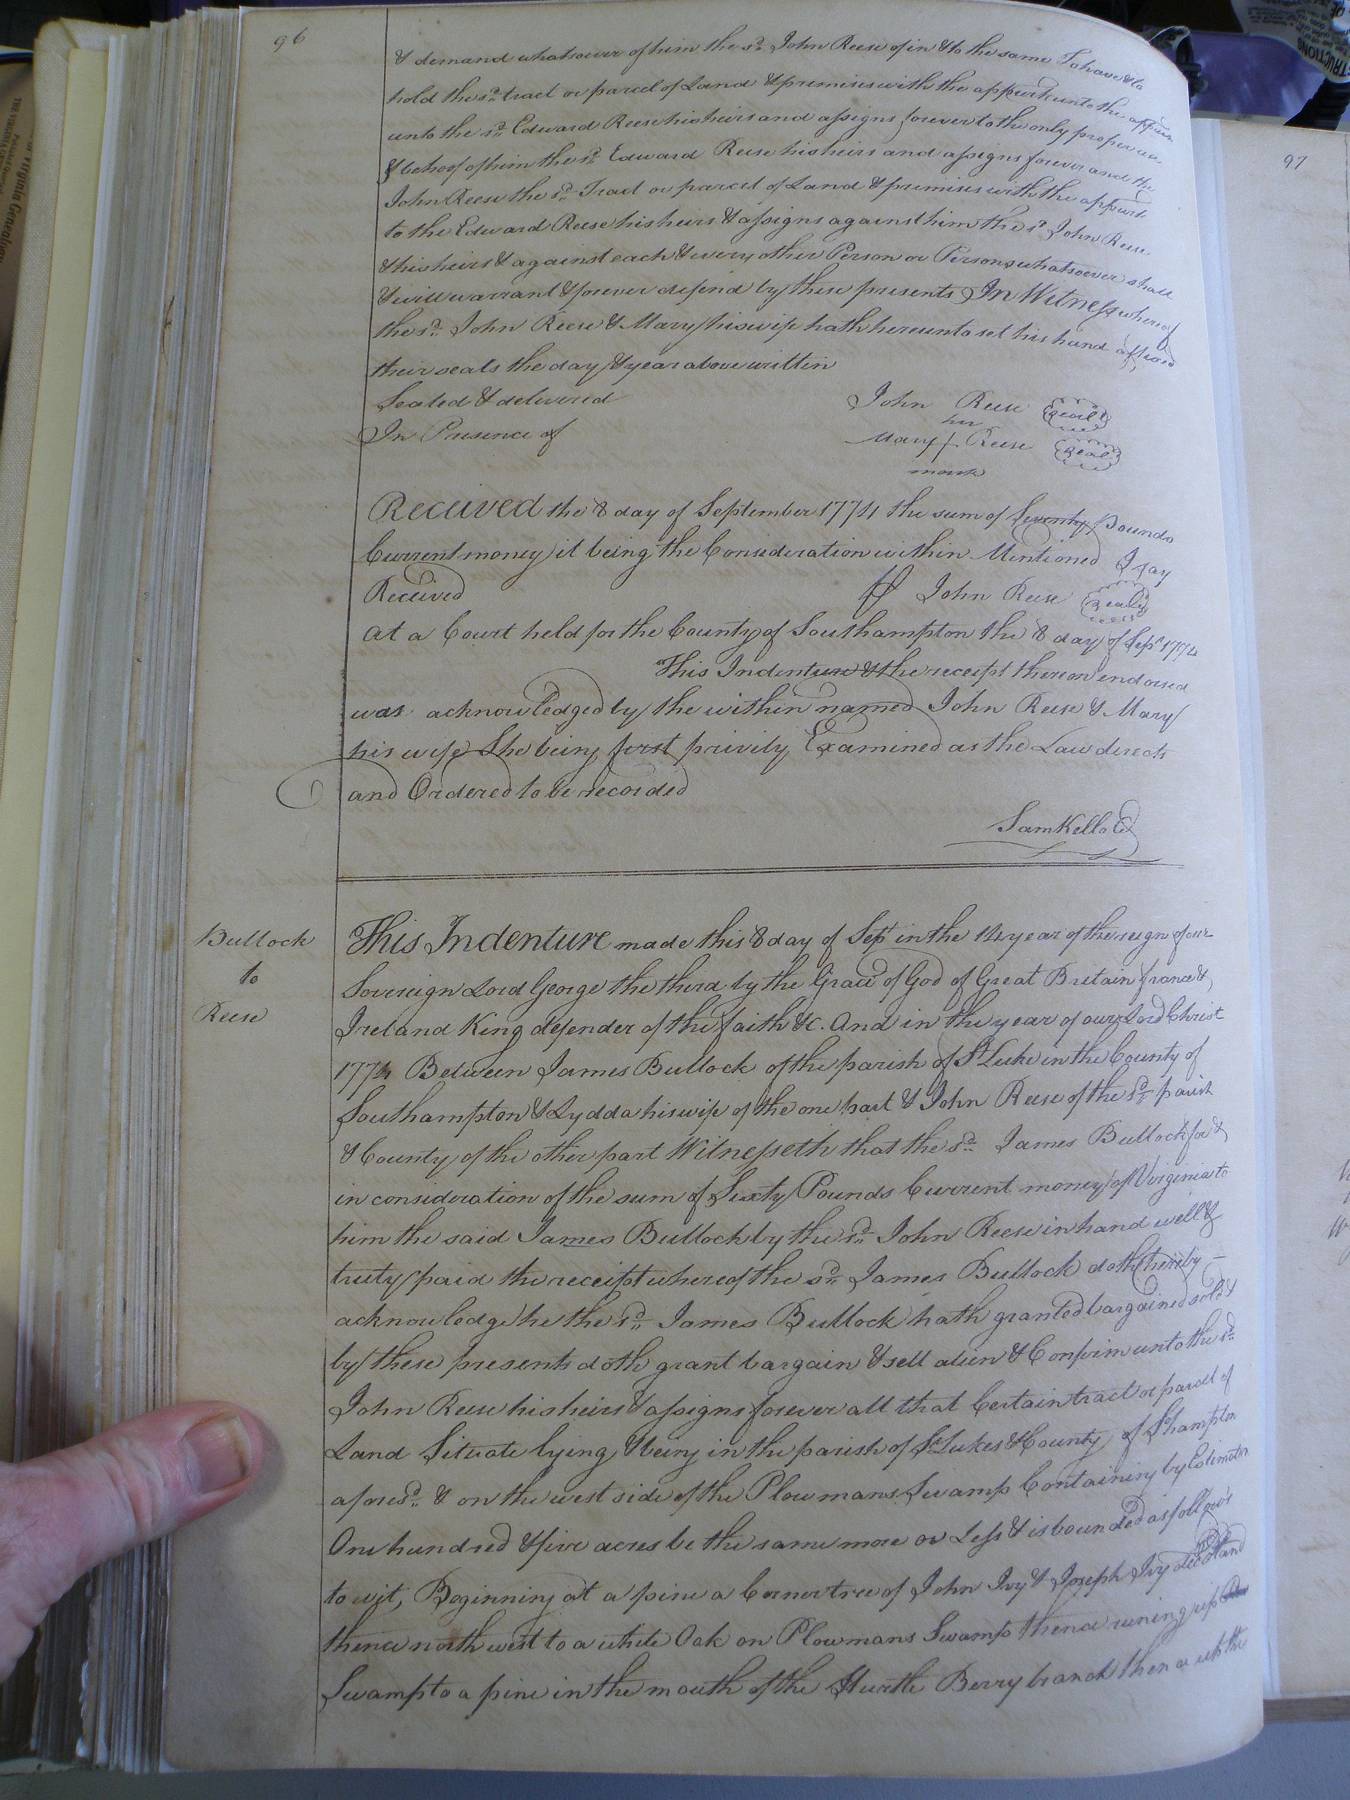 96
& demand whatsoever of him the sd. John Reese of in & to the same To have & to
hold the sd. tract or parcel of Land & premises with the appurts unto the
unto the sd. Edward Reese his heirs and assigns forever to the only proper use
& behoof of him the sd. Edward Reese his heirs and assigns forever and the
John Reese the sd. Tract or parcel of Land & premises with the appurts
to the Edward Reese his heirs & assigns against him the sd. John Reese
& his heirs & against each & every other Person or Persons whatsoever shall
& will warrant & forever defend by these presents In Witness whereof
the sd. John Reese & Mary his wife hath hereunto set his hand affixed
their seals the day & year above written
Sealed & delivered John Reese Seal
In Presence of her
Mary Reese Seal
mark
Received the 8 day of September 1774 the sum of Seventy Pounds
Current money it being the Consideration within Mentioned I say
Received John Reese Seal
At a Court held for the County of Southampton the 8 day of Sept 1774
This Indenture & the receipt thereon endorsed
was acknowledged by the within named John Reese & Mary
his wife She being first privily Examined as the Law directs
and Ordered to be recorded
Sam Kello
Bullock
to
Reese
This Indenture made this 8 day of Sept in the 14 year of the reign of our
Sovereign Lord George the third by the Grace of God of Great Britain france &
Ireland King defender of the faith &c. And in the year of our Lord Christ
1774 Between James Bullock of the parish of St Luke in the County of
Southampton & Lydda his wife of the one part & John Reese of the sd. parish
& County of the other part Witnesseth that the sd. James Bullock for &
in consideration of the sum of Sixty Pounds Current money of Virginia to
him the said James Bullock by the sd. John Reese in hand well &
truly paid the receipt whereof the sd. James Bullock doth hereby
acknowledge he the sd. James Bullock hath granted bargained sold &
by these presents doth grant bargain & sell alien & Confirm unto the sd.
John Reese his heirs & assigns forever all that Certain tract or parcell of
Land Situate lying & being in the parish of St Lukes & County of S.hampton
aforesd. & on the west side of the Plowmans Swamp Containing by Estimation
One hundred & five acres be the same more or Less & is bounded as follows
to wit, Beginning at a pine a Corner tree of John Ivy & Joseph Ivy decd Land
thence north west to a white Oak on Plowmans Swamp thence runing up
Swamp to a pine in the mouth of the Hurtle Berry branch thence up the
97